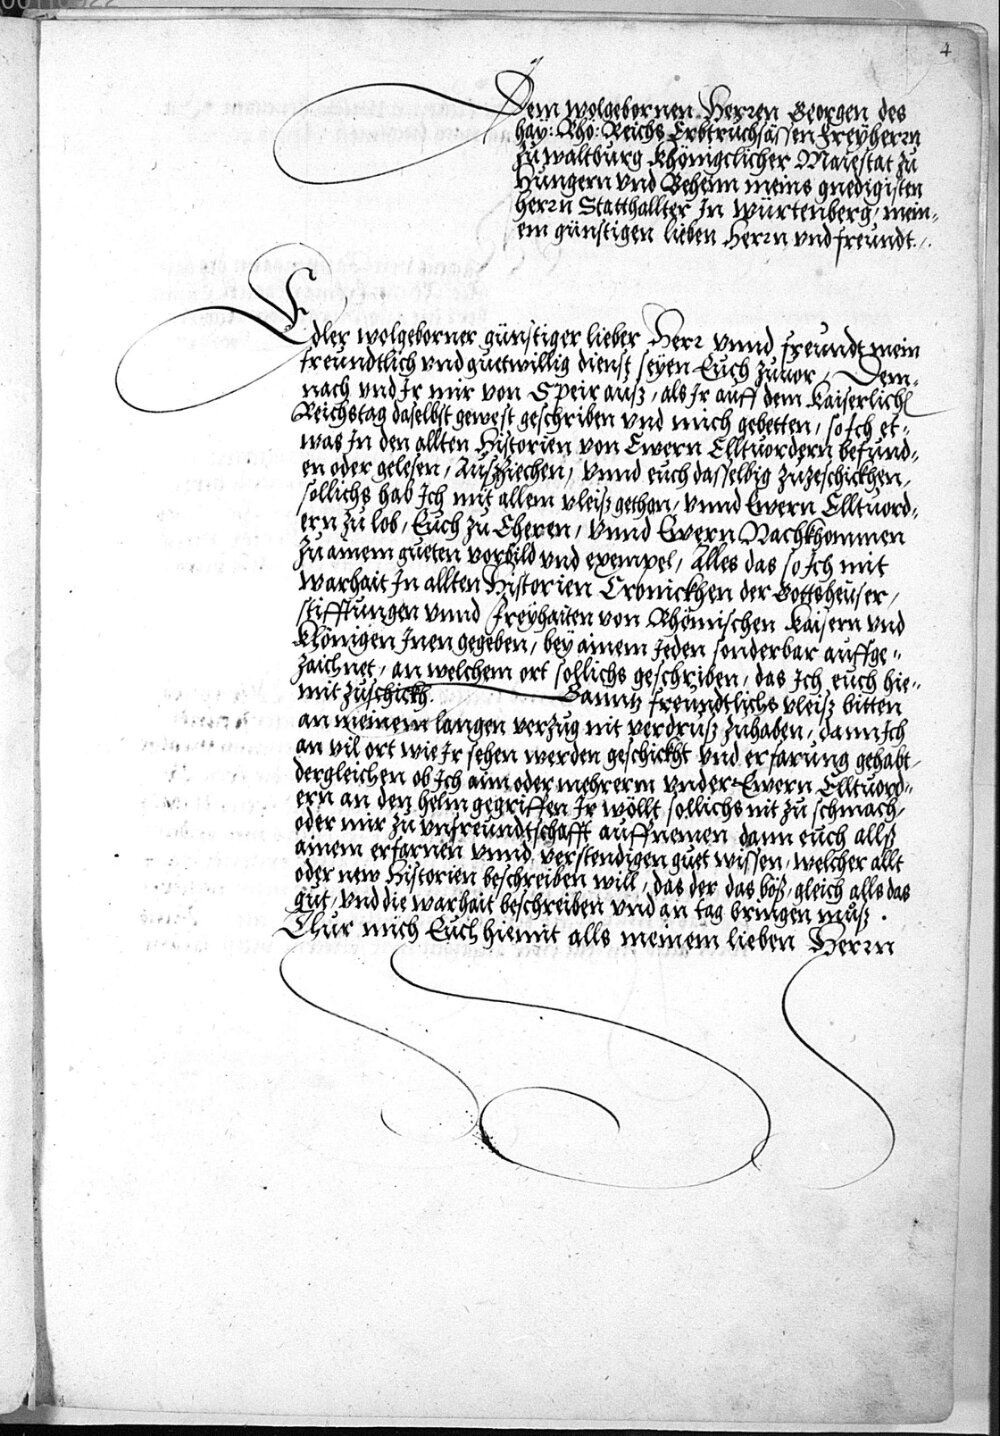 4
Dem wolgebornen Herren Georgen des
hay: Rho: Reichs Erbtruchsässen Freyherrn
zu Waltburg Khönigclicher Maiestat zu
Hungern vnd Behem meins gnedigisten
herrn Statthallter In Würtenberg, mein-
em günstigen lieben Herrn vnd freundt.
Edler wolgeborner günstiger lieber Herr vnnd freundt mein
freundtlich vnd guetwillig dienst seyen Euch zuuor, Dem-
nach vnd Ir mir von Speir auß, als Ir auff dem Kaiserlich
Reichstag daselbst gewest geschriben vnd mich gebetten, so Ich et-
was In den allten Historien von Ewern Elltuordern befund-
en oder gelesen, Ausziechen, vnnd euch dasselbig zuzeschickhen,
sollichs hab Ich mit allem vleiß gethan, vnnd Ewern Elltuord-
ern zu lob, Euch zu Eheren, vnnd Ewern Nachkhommen
zu ainem gueten vorbild vnd exempel, Alles das so Ich mit
warhait In allten Historien Cronickhen der Gottsheuser,
stifftungen vnnd freyhaiten von Rhömischen Kaisern vnd
Khönigen Inen gegeben, bey ainem Jeden sonderbar auffge-
zaichnet, an welchem ort sollichs geschriben, das Ich euch hie-
mit zuschickh. Ganntz freundtlichs vleiß bitten
an meinem langen verzug nit verdruß zuhaben, dann Ich
an vil ort wie Ir sehen werden geschickht vnd erfarung gehabt,
dergleichen ob Ich aim oder mehrerm vnder Ewern Elltuord-
ern an den helm gegriffen Ir wöllt sollichs nit zu schmach,
oder mir zu vnfreundtschafft auffnemen dann euch allß
ainem erfarnen vnnd verstendigen guet wissen, welcher allt
oder new Historien beschreiben will, das der das böß, gleich alls das
gut, vnd die warhait beschreiben vnd an tag bringen muß.
Thue mich Euch hiemit alls meinem lieben Herrn